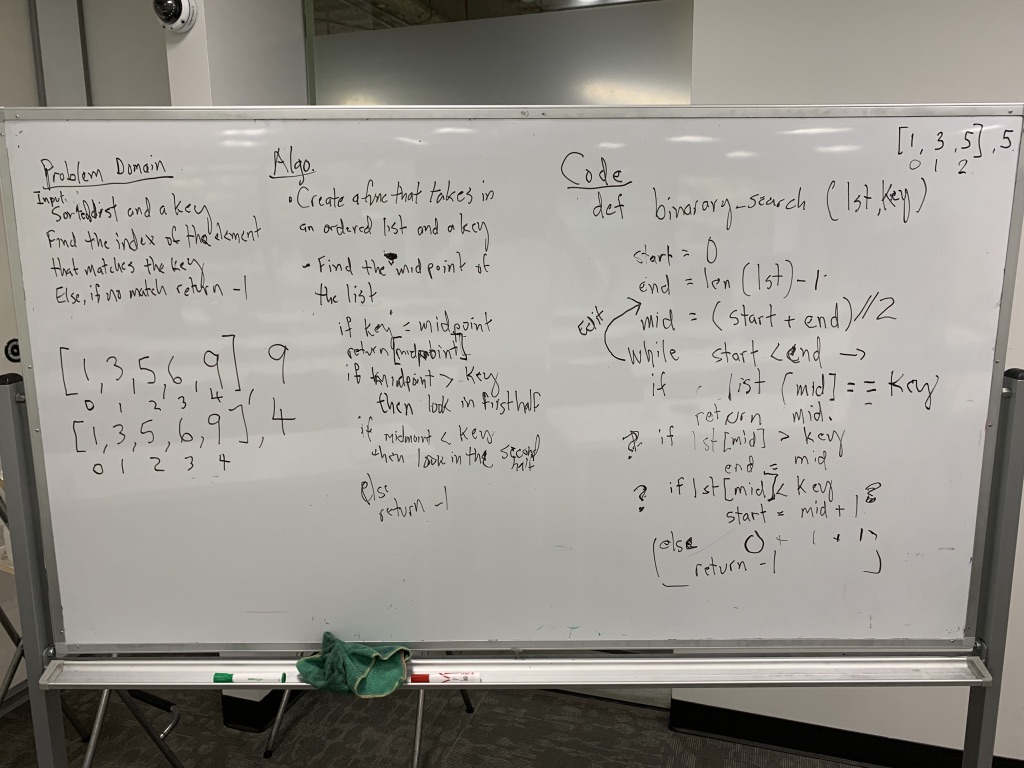 Problem Domain
Input:
Sorted list and a key
Find the index of the element
that matches the key
Else, if no match return -1
[1,3,5,6,9], 9
0 1 2 3 4
[1,3,5,6,9], 4
0 1 2 3 4
Algo.
• Create a func that takes in
an ordered list and a key
- Find the midpoint of
the list
if key = midpoint
return [midpoint]
if midpoint > key
then look in first half
if midpoint < key
then look in the second
half
else
return -1
[1, 3, 5], 5
0 1 2
Code
def binarary_search (lst, key)
start = 0
end = len (lst) - 1
mid = (start + end) // 2
Edit
while start < end →
if list [mid] == key
return mid.
? if lst[mid] > key
end = mid
? if lst[mid] < key ?
start = mid + 1
(else 0 + 1 + 1)
return -1